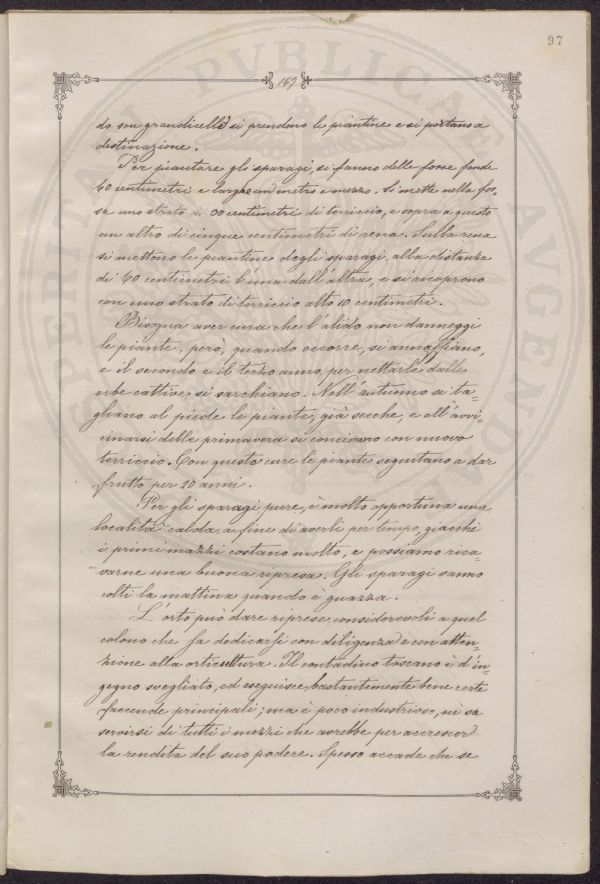 97
169
do son grandicelli si prendono le piantine e si portano a
destinazione.
Per piantare gli sparagi si fanno delle fosse fonde
60 centimetri e larghe un metro e mezzo. Si mette nella fos-
sa uno strato di 00 centimetri di terriccio, e sopra a questo
un altro di cinque centimetri di rena. Sulla rena
si mettono le piantine degli sparagi, alla distanza
di 60 centimetri l'una dall'altra, e si ricoprono
con uno strato di terriccio alto 10 centimetri.
Bisogna aver cura che l'alido non danneggi
le piante, però, quando occorre, si annaffiano,
e il secondo e il terzo anno, per nettarle dalle
erbe cattive si sarchiano. Nell'autunno si ta-
gliano al piede le piante, già secche, e all'avvi-
cinarsi della primavera si concimano con nuovo
terriccio. Con queste cure le piante seguitano a dar
frutto per 20 anni.
Per gli sparagi pure, è molto opportuna una
località calda, a fine di averli per tempo, giacchè
i primi mazzi costano molto, e possiamo rica-
varne una buona ripresa. Gli sparagi vanno
colti la mattina quando è guazza.
L'orto può dare riprese considerevoli a quel
colono che sa dedicarsi con diligenza e con atten-
zione alla orticultura. Il contadino toscano è d'in-
gegno svegliato, ed eseguisce bastantemente bene certe
faccende principali; ma è poco industrioso, nè sa
servirsi di tutti i mezzi che avrebbe per accrescer
la rendita del suo podere. Spesso accade che se
PVBLICAE
AVGENDAE